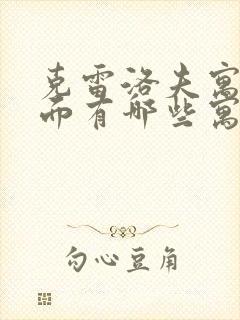 克雷洛夫寓
而有哪些寓
勾心豆角